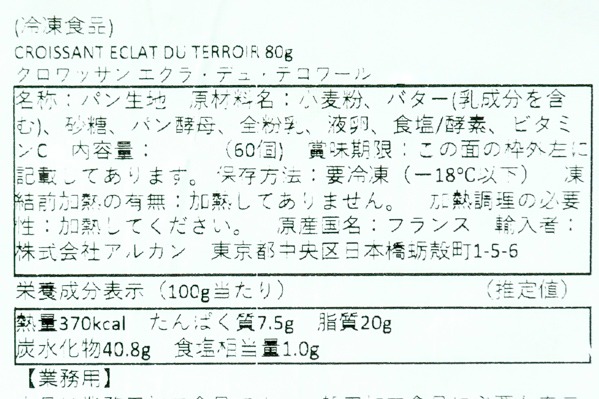 (冷凍食品)
CROISSANT ECLAT DU TERROIR 80g
クロワッサン エクラ・デュ・テロワール
名称：パン生地　原材料名：小麦粉、バター(乳成分を含
む)、砂糖、パン酵母、全粉乳、液卵、食塩/酵素、ビタミ
ンC　内容量：　　　(60個)　賞味期限：この面の枠外左に
記載してあります。 保存方法：要冷凍（－18℃以下）　凍
結前加熱の有無：加熱してありません。　加熱調理の必要
性：加熱してください。　原産国名：フランス　輸入者：
株式会社アルカン　東京都中央区日本橋蛎殻町1-5-6
栄養成分表示（100g当たり）　　　（推定値）
熱量370kcal　たんぱく質7.5g　脂質20g
炭水化物40.8g　食塩相当量1.0g
【業務用】